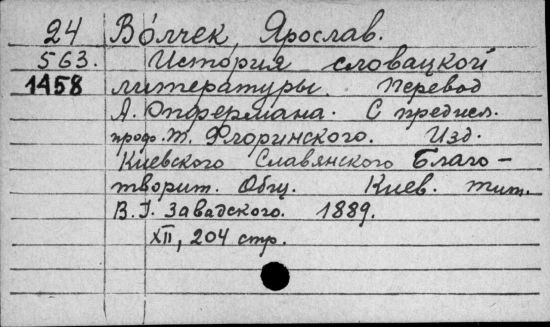 24 Во́лчек, Ярослав.
563. История словацкой
1458 литературы. Перевод
А. Опфермана. С предисл.
проф. Т. Флоринского. Изд.
Киевского Славянского Благо-
творит. Общ. Киев. тип.
В. I. Завадского. 1889.
XII, 204 стр.